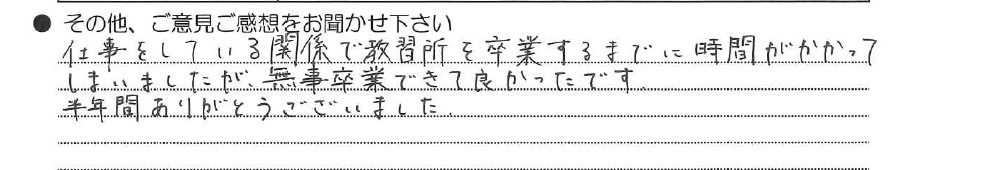 ● その他、ご意見ご感想をお聞かせ下さい
仕事をしている関係で教習所を卒業するまでに時間がかかって
しまいましたが、無事卒業できて良かったです。
半年間ありがとうございました。